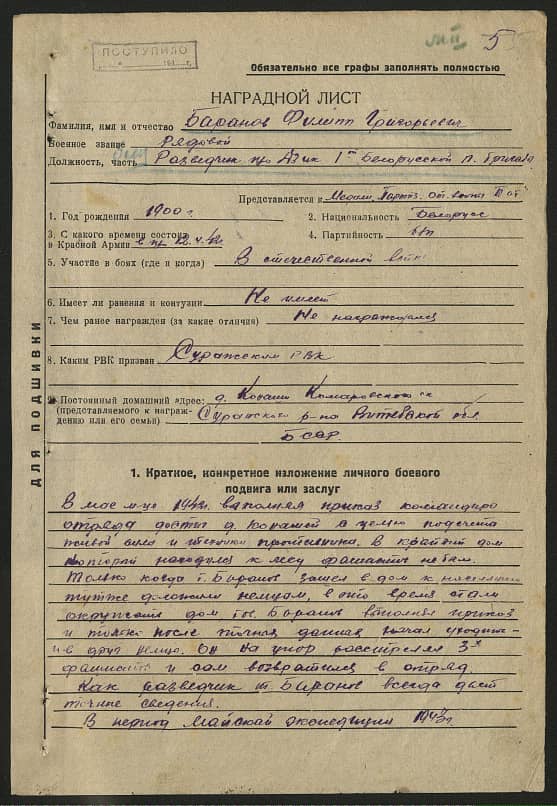 5
ПОСТУПИЛО
Обязательно все графы заполнять полностью
НАГРАДНОЙ ЛИСТ
Фамилия, имя и отчество Баранов Филипп Григорьевич
Военное звание Рядовой
Должность, часть Разведчик 1й Белорусской п. бригады
Представляется к Медали Партиз. От. войны
1. Год рождения 1900 г.
2. Национальность Белорус
3. С какого времени состоит
в Красной Армии
4. Партийность б/п
5. Участие в боях (где и когда) В отечественной
6. Имеет ли ранения и контузии Не имеет
7. Чем ранее награжден (за какие отличия) Не награждался
8. Каким РВК призван Суражским РВК
9. Постоянный домашний адрес: д.
(представляемого к награждению или его семьи) Суражского р-на Витебской обл.
БССР.
для подшивки
1. Краткое, конкретное изложение личного боевого
подвига или заслуг
В мае м-це выполняя приказ командира
отряда д. с целью подсчета
живой силы и техники противника. В крайний дом
который находился к лесу фашисты не был.
Только когда т. Баранов зашел в дом к
тут же доложили немцам, в это время стали
окружать дом тов. Баранов выполняя приказ
и только после данная начал уходить
Он на упор расстрелял 3х
фашистов и сам возвратился в отряд.
Как разведчик т. Баранов всегда дает
точные сведения.
В период Майской экспедиции 1943г.